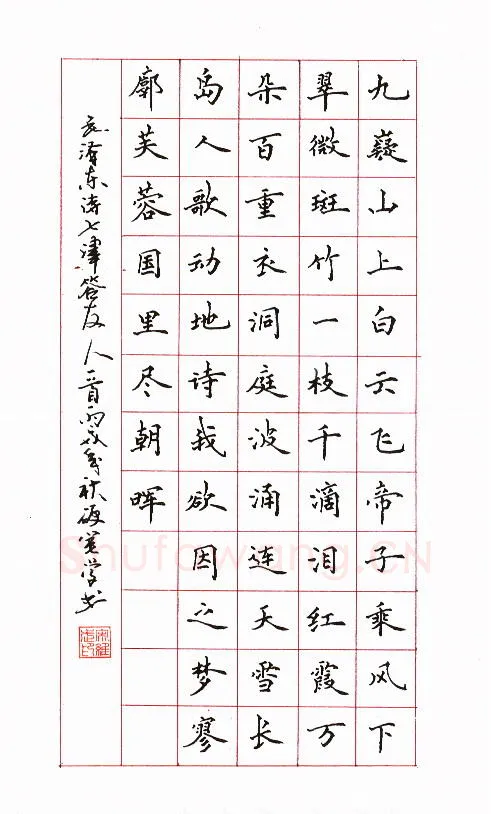 九嶷山上白云飞帝子乘风下
翠微斑竹一枝千滴泪红霞万
朵百重衣洞庭波涌连天雪长
岛人歌动地诗我欲因之梦寥
廓芙蓉国里尽朝晖
毛泽东诗七律答友人一首丙戌年秋学书
Shufawang.CN